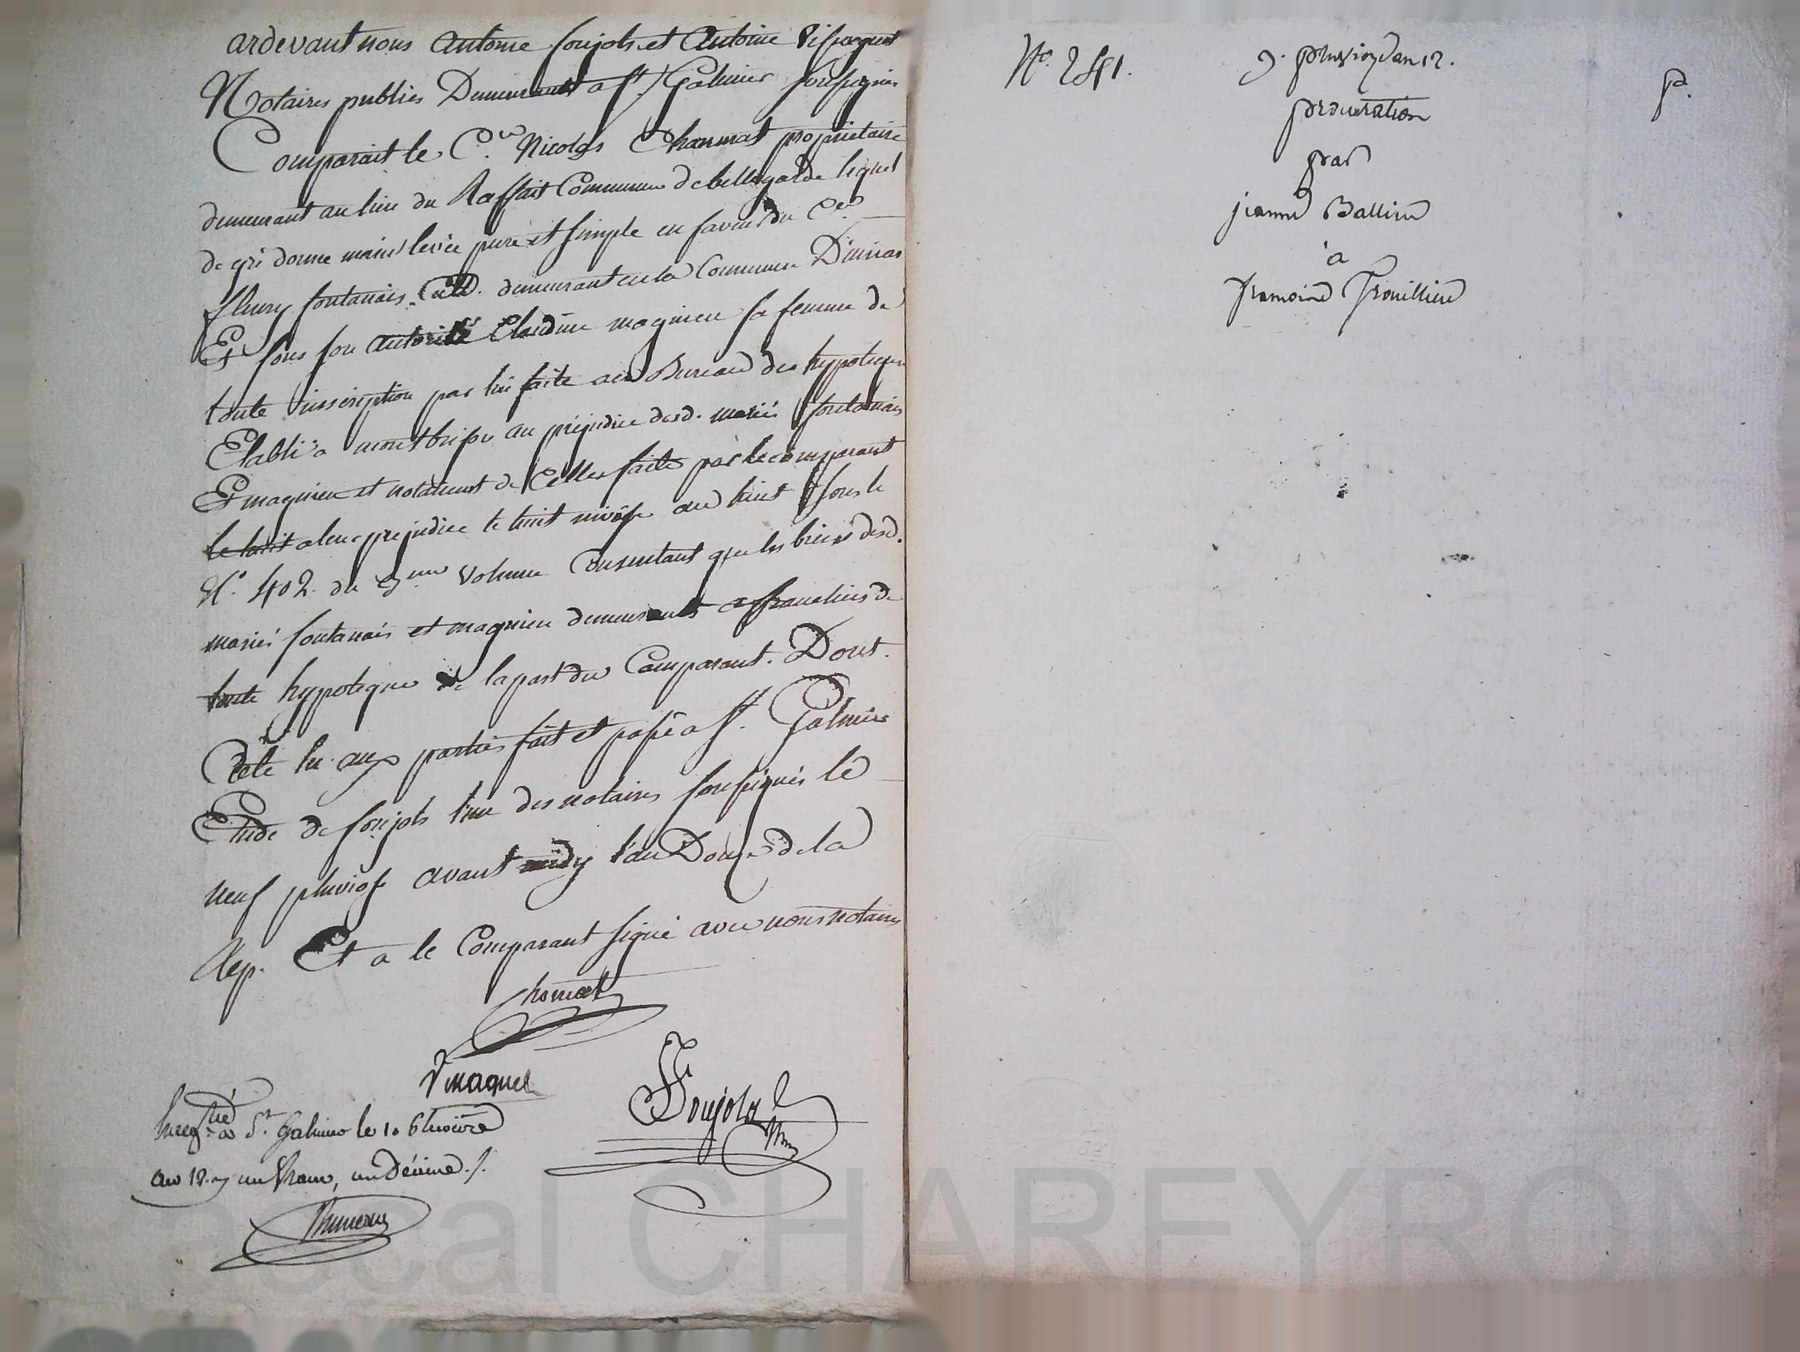 ardevant nous Antoine Soujols et Antoine
Notaires publics Demeurant a St. Galmier soussignés
Comparait le C.en Nicolas Charmat propriétaire
demeurant au lieu du Raffait Commune de bellegarde lequel
de gré donne main levée pure et simple en faveur du C.en
fleury fontanais Cult. demeurant en la Commune D'aivas
Et sous son autorité Claudine magnien sa femme de
toute inscription par lui faite au Bureau des hypoteques
Etabli a montbrison au préjudice desd. mariés fontanais
Et magnien et notament de Celle faite par le comparant
le huit a leur prejudice le huit nivôse an huit sous le
N.o 402. du 3.me Volume Consentant que les biens desd.
mariés fontanais et magnien demeurants affranchis de
toute hypoteque de la part du Comparant. Dont.
Acte lu aux parties fait et passé a St. Galmier
Etude de Soujols l'un des notaires soussignés le
neuf pluviose avant midy l'an Douze de la
Rep. Et a le Comparant signé avec nous notaires
Chomat
Vinaquet
Soujols
Nre
Enregtré à St. Galmier le 10 Pluviôse
an 12. un franc, un décime./.
Thiveau
N.o 241.
9. pluviose an 12.
P.
procuration
par
jeanne Ballire
à
Pascal CHAREYRON